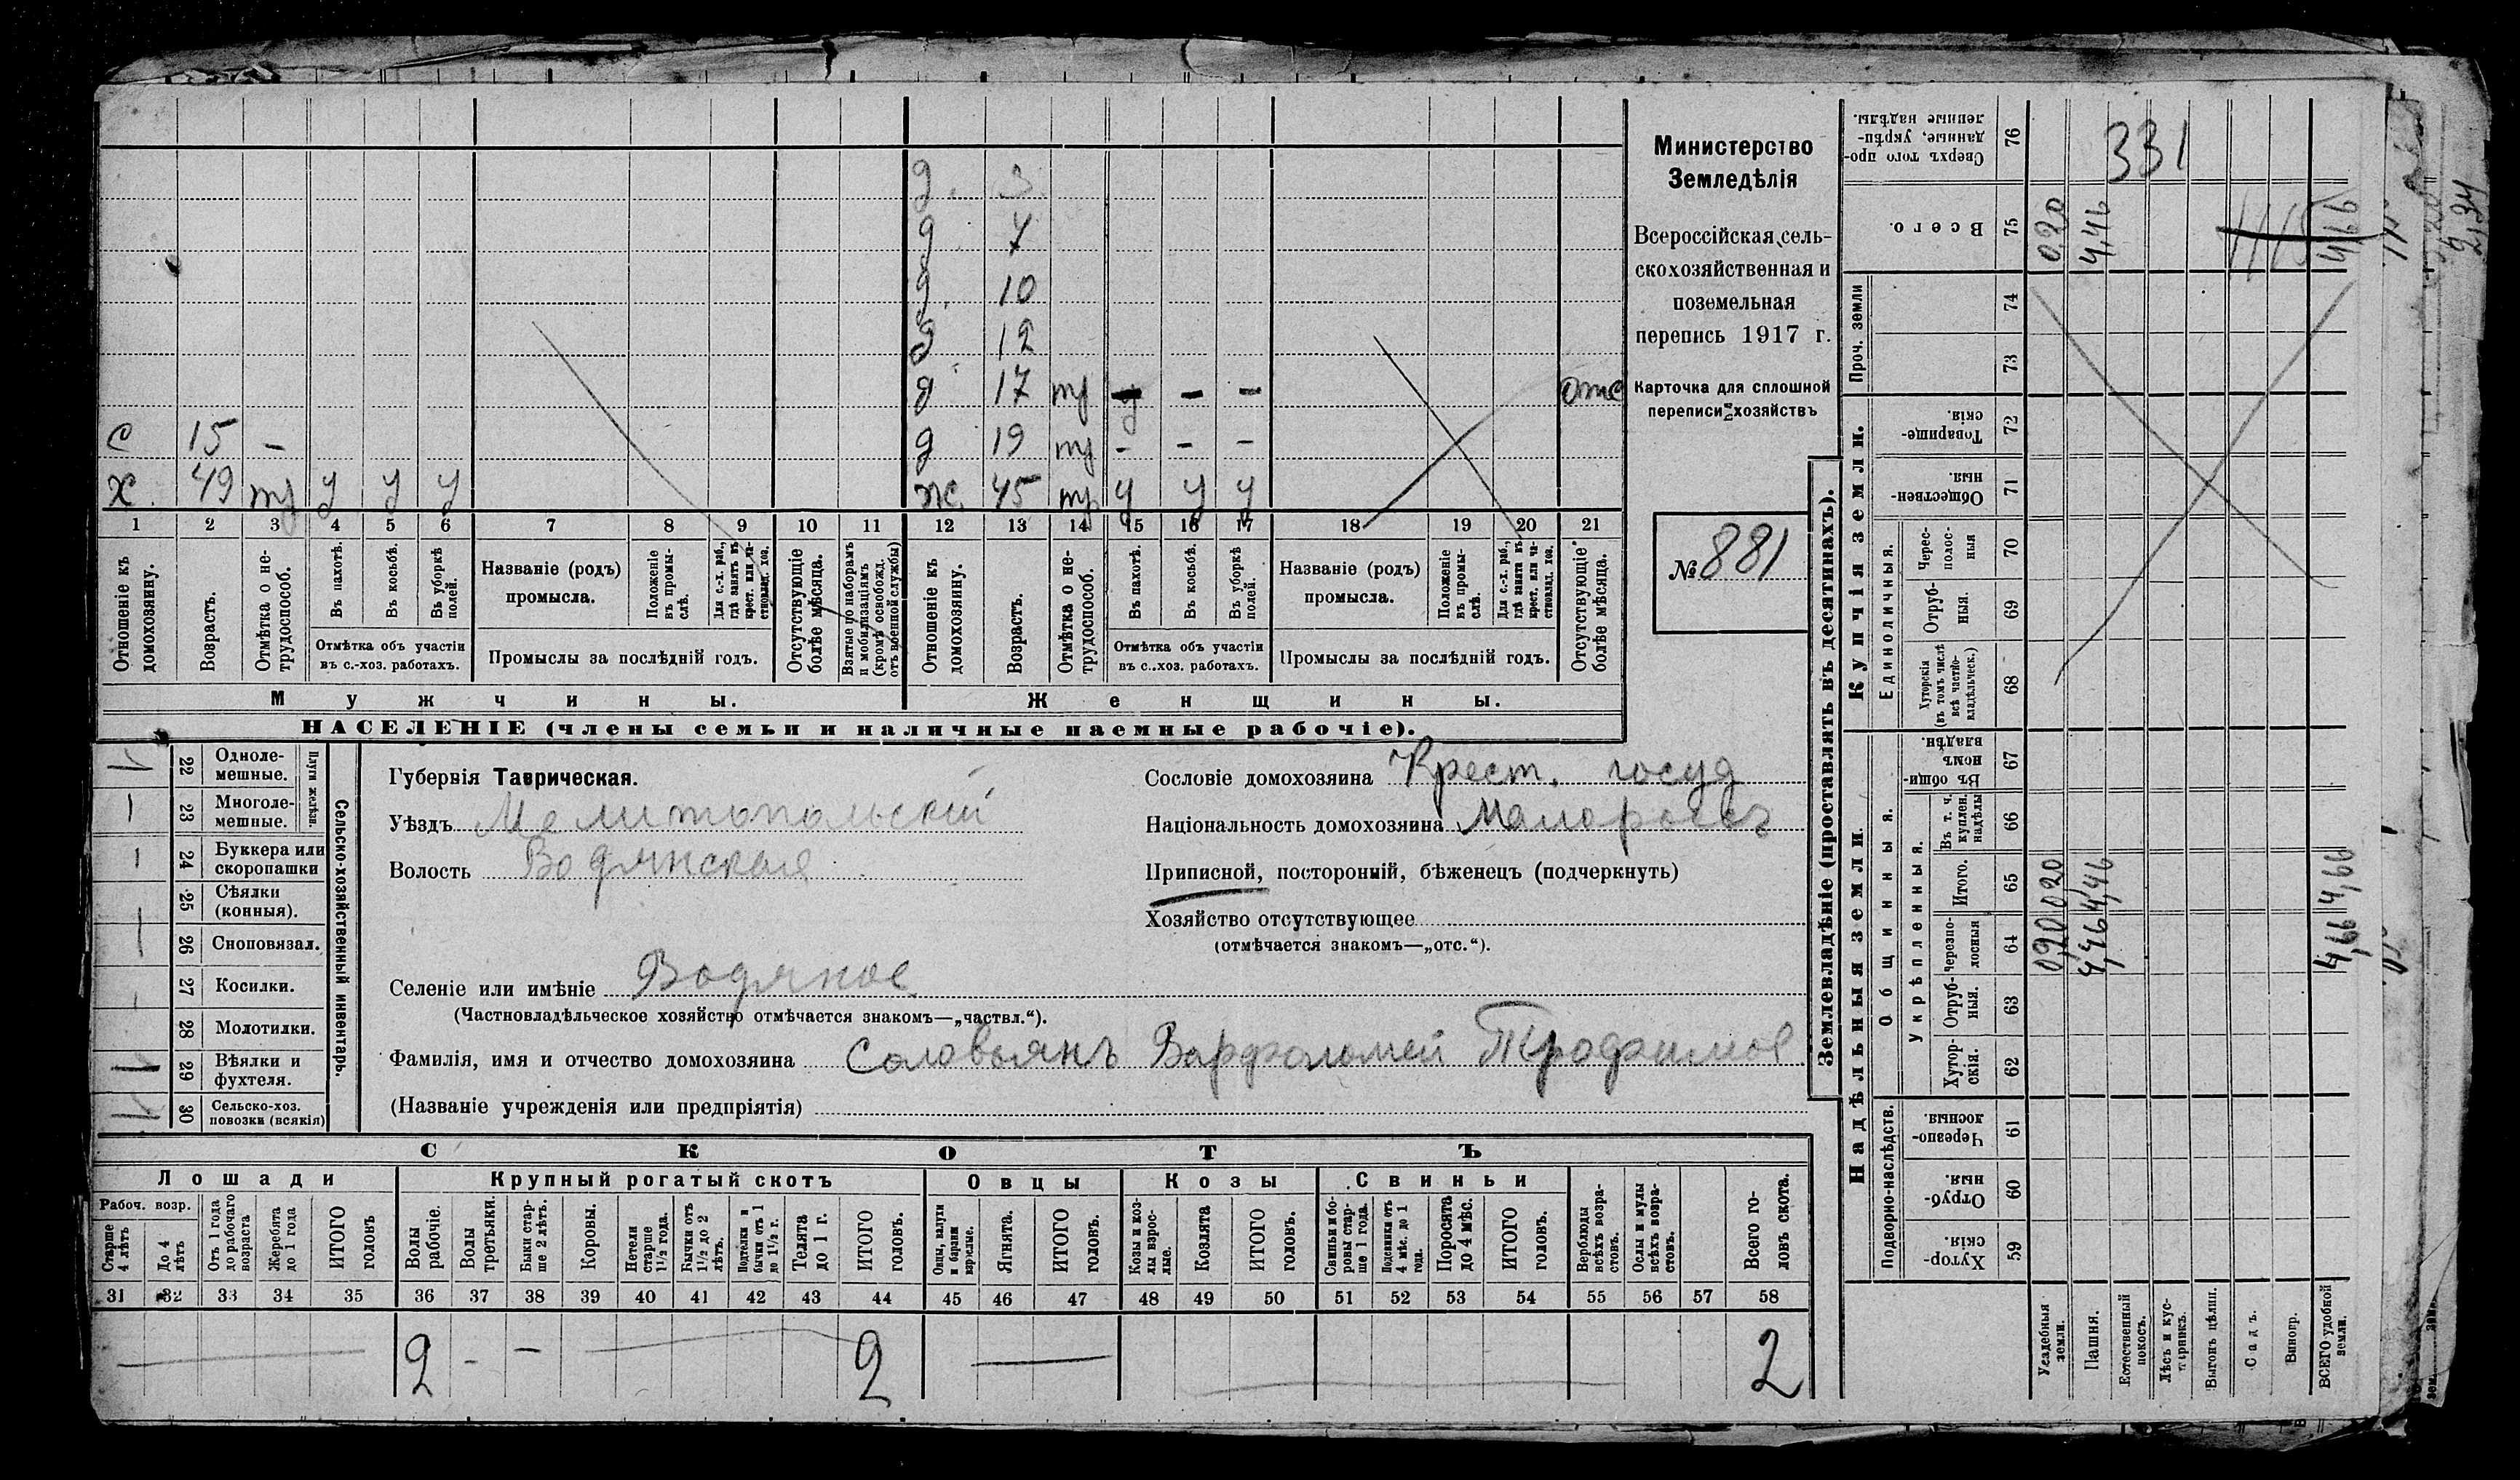 д. 3
д 7
д. 10
д 12
д 17 тр — — — отс
с 15 - д 19 тр - - -
х. 49 тр у у у ж. 45 тр у у у
1 2 3 4 5 6 7 8 9 10 11 12 13 14 15 16 17 18 19 20 21
Отношеніе къ домохозяину.
Возрастъ.
Отмѣтка о нетрудоспособ.
Въ пахотѣ.
Въ косьбѣ.
Въ уборкѣ полей.
Отмѣтка объ участіи
въ с.-хоз. работахъ.
Названіе (родъ)
промысла.
Положеніе въ промыслѣ.
Для с.-х. раб., гдѣ занятъ въ крест. или частновлад. хоз.
Промыслы за послѣдній годъ.
Отсутствующіе болѣе мѣсяца.
Взятые по наборамъ и мобилизаціямъ (кромѣ освобожд. отъ военной службы)
Отношеніе къ домохозяину.
Возрастъ.
Отмѣтка о нетрудоспособ.
Въ пахотѣ.
Въ косьбѣ.
Въ уборкѣ полей.
Отмѣтка объ участіи
въ с.-хоз. работахъ.
Названіе (родъ)
промысла.
Положеніе въ промыслѣ.
Для с.-х. раб., гдѣ занята въ крест. или частновлад. хоз.
Промыслы за послѣдній годъ.
Отсутствующіе болѣе мѣсяца.
Мужчины. Женщины.
НАСЕЛЕНІЕ (члены семьи и наличные наемные рабочіе).
Министерство
Земледѣлія
Всероссійская сель-
скохозяйственная и
поземельная
перепись 1917 г.
Карточка для сплошной
переписи хозяйствъ
№ 881
22 Одноле-
мешные.
23 Многоле-
мешные.
Плуги желѣзн.
24 Буккера или
скоропашки
25 Сѣялки
(конныя).
26 Сноповязал.
27 Косилки.
28 Молотилки.
29 Вѣялки и
фухтеля.
30 Сельско-хоз.
повозки (всякія)
Сельско-хозяйственный инвентарь.
Губернія Таврическая.
Уѣздъ Мелитопольскій
Волость Водянская
Селеніе или имѣніе Водяное
(Частновладѣльческое хозяйство отмѣчается знакомъ—„частвл.“).
Фамилія, имя и отчество домохозяина Соловьянъ Варфоломей Трофимов
(Названіе учрежденія или предпріятія)
Сословіе домохозяина Крест. госуд
Національность домохозяина Малороссъ
Приписной, посторонній, бѣженецъ (подчеркнуть)
Хозяйство отсутствующее
(отмѣчается знакомъ—„отс.“).
СКОТЪ
Лошади Крупный рогатый скотъ Овцы Козы Свиньи
Рабоч. возр.
Старше 4 лѣтъ
До 4 лѣтъ
Отъ 1 года до рабочаго возраста
Жеребята до 1 года
ИТОГО головъ
Волы рабочіе.
Волы третьяки.
Быки старше 2 лѣтъ.
Коровы.
Нетели старше 1½ года.
Бычки отъ 1½ до 2 лѣтъ.
Подтелки и бычки отъ 1 до 1½ г.
Телята до 1 г.
ИТОГО головъ.
Овцы, валухи и бараны взрослые.
Ягнята.
ИТОГО головъ.
Козы и козлы взрослые.
Козлята
ИТОГО головъ.
Свиньи и боровы старше 1 года.
Подсвинки отъ 4 мѣс. до 1 года.
Поросята до 4 мѣс.
ИТОГО головъ.
Верблюды всѣхъ возрастовъ.
Ослы и мулы всѣхъ возрастовъ.
Всего головъ скота.
31 32 33 34 35 36 37 38 39 40 41 42 43 44 45 46 47 48 49 50 51 52 53 54 55 56 57 58
2 - - 2 — 2
Землевладѣніе (проставлять въ десятинахъ).
Надѣльныя земли. Купчія земли.
Подворно-наслѣдств.
Хутор-
скія. 59
Отруб-
ныя. 60
Черезпо-
лосныя 61
Общинныя.
Укрѣпленныя.
Хутор-
скія. 62
Отруб-
ныя. 63
Черезпо-
лосныя 64
Итого. 65
Въ т. ч. куплен. надѣлы 66
Въ общинномъ владѣн. 67
Единоличныя.
Хуторскія (въ томъ числѣ всѣ частновладѣльческ.) 68
Отруб-
ныя. 69
Черес-
полос-
ныя 70
Обществен-
ныя. 71
Товарище-
скія. 72
Проч. земли
73
74
Всего. 75
Сверхъ того проданные, укрѣпленные надѣлы. 76
Усадебныя земли. 0,20 0,20 0,20
Пашня. 4,46 4,46 4,46
Естественный покосъ.
Лѣсъ и кустарникъ.
Выгонъ цѣлин.
Садъ.
Виногр.
ВСЕГО удобной земли. 4,66 4,66 4,66
331